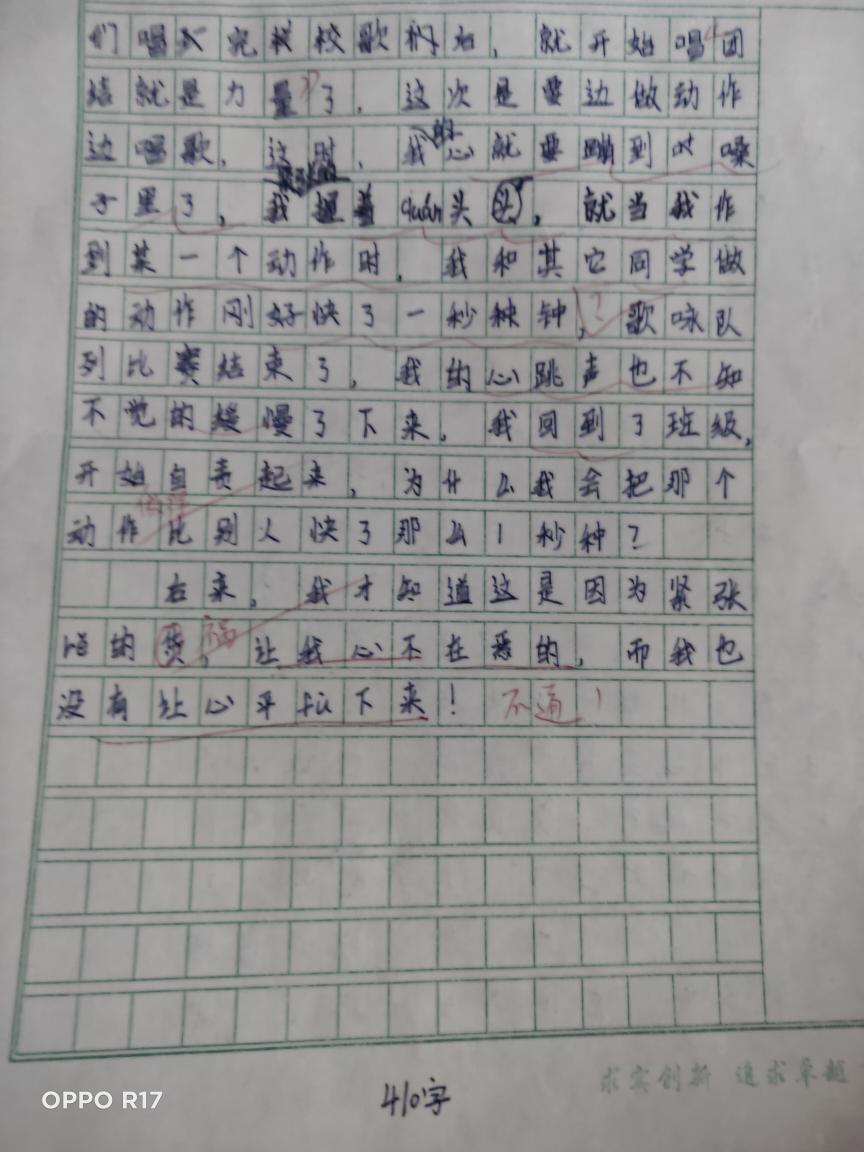 们唱完校歌后，就开始唱团
结就是力量了，这次是要边做动作
边唱歌，这时，我的心就要蹦到嗓
子里了，我握着quán头，就当我作
到某一个动作时，我和其它同学做
的动作刚好快了一秒钟，？歌咏队
列比赛结束了，我的心跳声也不知
不觉的缓慢了下来，我回到了班级，
开始自责起来，为什么我会把那个
做得
动作比别人快了那么1秒种？
右来，我才知道这是因为紧张
的 祸，让我心不在的，而我也
没有让心平fù下来！不通！
410字
求实创新 追求卓越
OPPO R17